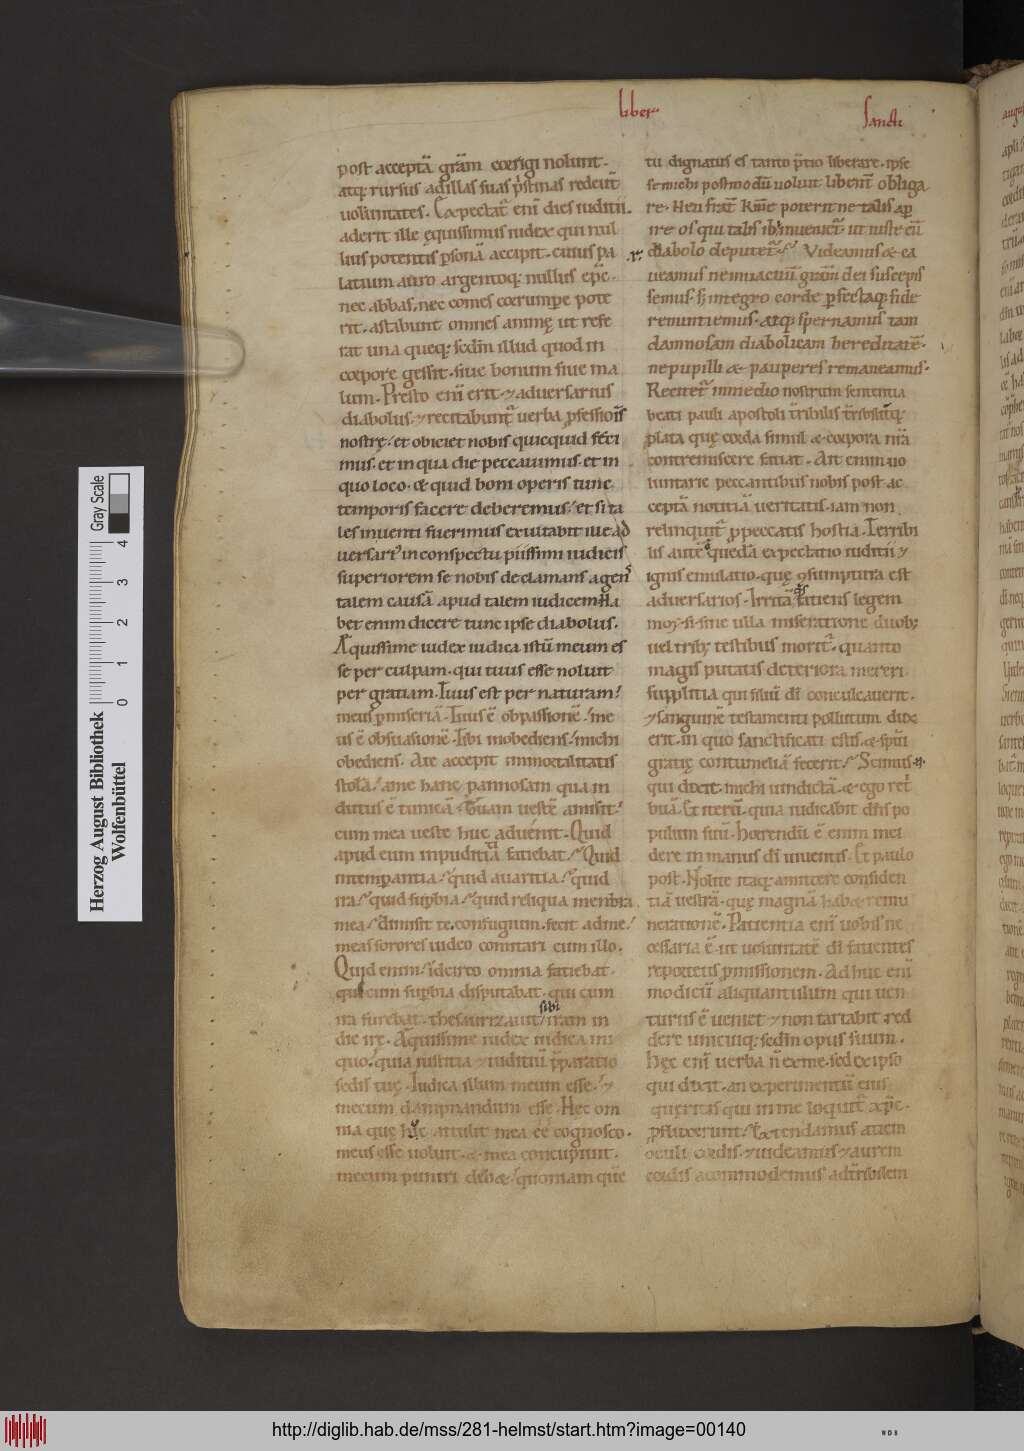 liber
Sancti
post acceptā grām corrigi nolunt.
atq; rursus ad illas suas p̄stinas redeūt
uoluntates. Expectat̄ enī dies iuditii.
aderit ille ęquissimus iudex qui nul
lius potentis p̄sonā accipit. cuius pa
latium auro argentoq; nullus ep̄c.
nec abbas. nec comes corrumpe pote
rit. astabunt omnes animę ut refe
rat una queq; sedm̄ illud quod in
corpore gessit. siue bonum siue ma
lum. Presto enī erit. & aduersarius
diabolus. & recitabunt̄ uerba p̄fessiois
nostrę. et obiciet nobis quicquid feci
mus. et in qua die peccauimus. et in
quo loco. & quid boni operis tunc
temporis facere deberemus. et si ta
les inuenti fuerimus exultabit ille ad
uersari' in conspectu piissimi iudicis
superiorem se nobis declamans agen̄
talem causā apud talem iudicem. Ha
bet enim dicere tunc ipse diabolus.
Aequissime iudex iudica istū meum es
se per culpam. qui tuus esse noluit
per gratiam. Tuus est per naturam.
meus p miseriā. Tuus ē ob passionē. me
us ē ob suasionē. Tibi inobediens. michi
obediens. A te accepit immortalitatis
stolā. a me hanc pannosam qua in
dutus ē tunicā. Tuam uestē amisit.
cum mea ueste huc aduenit. Quid
apud eum inpuditiā faciebat. Quid
intemp̄antia. quid auaritia. quid
ira. quid sup̄bia. quid reliqua menbra
mea. dimisit te. confugium fecit ad me.
meas sorores uideo comitari cum illo.
Quid enim. idcirco omnia faciebat.
qui cum sup̄bia disputabat. qui cum
ira furebat. thesaurizauit sibi iram in
die irę. Aequissime iudex iudica in
quo. quia iustitia & iuditiū p̄paratio
sedis tuę. Iudica illum meum esse. &
mecum dampnandum esse. Hec om
nia quę huc attulit mea eē cognosco.
meus esse uoluit. & mea concupiuit.
mecum puniri debet. quoniam quē
tu dignatus es tanto p̄tio liberare. ipse
se michi postmodū uoluit libent̄ obliga
re. Heu frat̄ karissime poterit ne talis ap
rire os qui talis ibi inuenit̄. ut iuste cū
diabolo deputet̄. Videamus & ca
ueamus ne in uacuū grām dei suscepis
semus. s; integro corde p̄fectaq; fide
renuntiemus. atq; spernamus tam
damnosam diabolicam hereditatē.
ne pupilli & pauperes remaneamus.
Recitet̄ in medio nostrum sententia
beati pauli apostoli
plata quę corda simul & corpora nr̄a
contremiscere faciat. Ait enim uo
luntarie peccantibus nobis post ac
ceptā notitiā ueritatis. iam non
relinquit̄ p peccatis hostia. Terribi
lis autē quedā expectatio iuditii &
ignis emulatio. quę 9sumptura est
aduersarios. Irritā faciens legem
moysi. sine ulla miseratione duob;
uel trib; testibus morit̄. quanto
magis putatis deteriora mereri
supplitia qui filiū dī conculcauerit.
& sanguinē testamenti pollutum dux
erit. in quo sanctificati estis. & spūi
gratię contumeliā fecerit. Scimus. n.
qui dixit. michi uindictā. & ego ret̄
buā. Et iterū. quia iudicabit dn̄s po
pulum suū. horrendū ē enim inci
dere in manus dī uiuentis. Et paulo
post. Nolite itaq; amittere confiden
tiā uestrā. quę magnā habet remu
nerationē. Patientia enī uobis ne
cessaria ē. ut uoluntatē dī facientes
reportetis p̄missionem. Adhuc enī
modicū aliquantulum qui uen
turus ē ueniet & non tardabit red
dere unicuiq; sedm̄ opus suum.
hęc enī uerba n̄ ex me. sed ex ipso
qui dixit. an experimentū eius
queritis qui in me loquit̄ xp̄c.
p̄fluxerunt. Extendamus aciem
oculi cordis. & uideamus & aurem
cordis accommodemus ad
Herzog August Bibliothek
Wolfenbüttel
Gray Scale
0 1 2 3 4
http://diglib.hab.de/mss/281-helmst/start.htm?image=00140